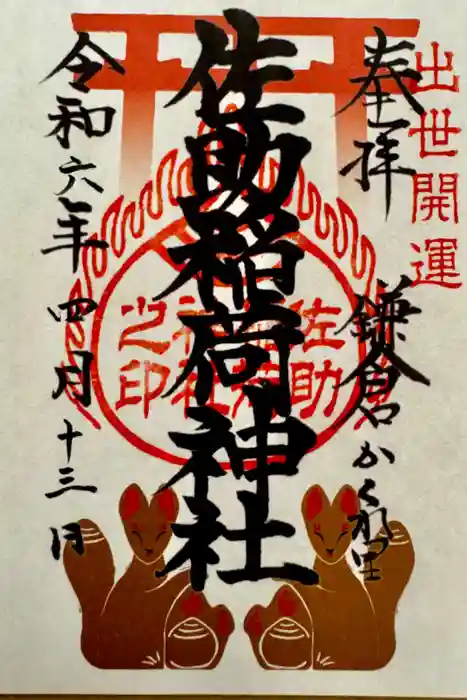 出世開運
奉拝
鎌倉かくれ里
佐助稲荷神社
佐助稲荷神社之印
令和六年四月十三日